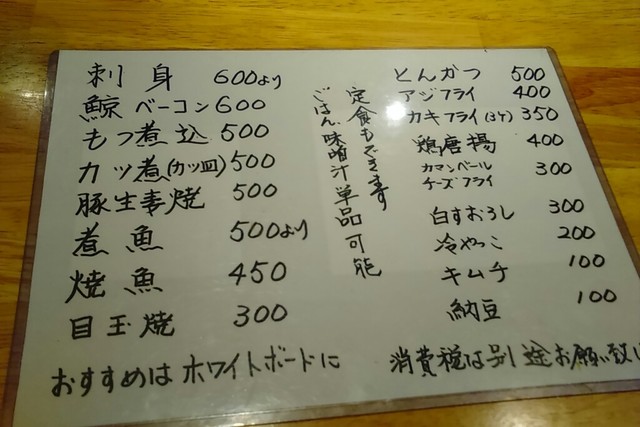 刺身 600より
鯨ベーコン 600
もつ煮込 500
カツ煮(カツ皿) 500
豚生姜焼 500
煮魚 500より
焼魚 450
目玉焼 300
おすすめは ホワイトボードに
定食もできます
ごはん、味噌汁単品可能
とんかつ 500
アジフライ 400
カキフライ(3ケ) 350
鶏唐揚 400
カマンベール
チーズフライ 300
白すおろし 300
冷やっこ 200
キムチ 100
納豆 100
消費税は別途お願い致し